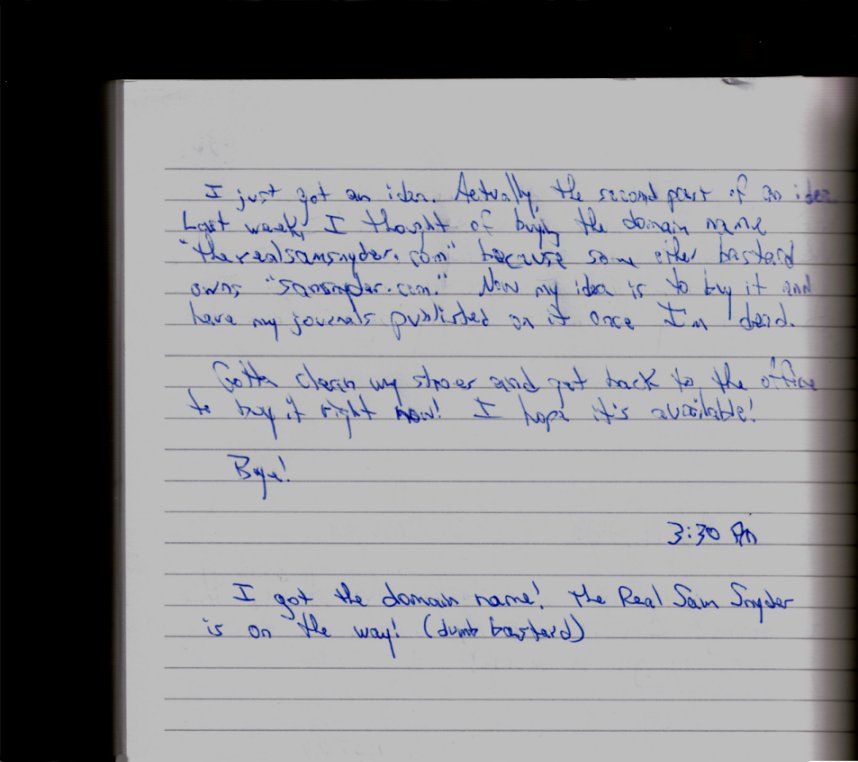 I just got an idea. Actually, the second part of an idea
Last week, I thought of buying the domain name
"therealsamsnyder.com" because some other bastard
owns "samsnyder.com." Now my idea is to buy it and
have my journals published on it once I'm dead.
Gotta clean my and get back to the office
to buy it right now! I hope it's available!
Bye!
3:30 PM
I got the domain name! The Real Sam Snyder
is on the way! (dumb bastard)